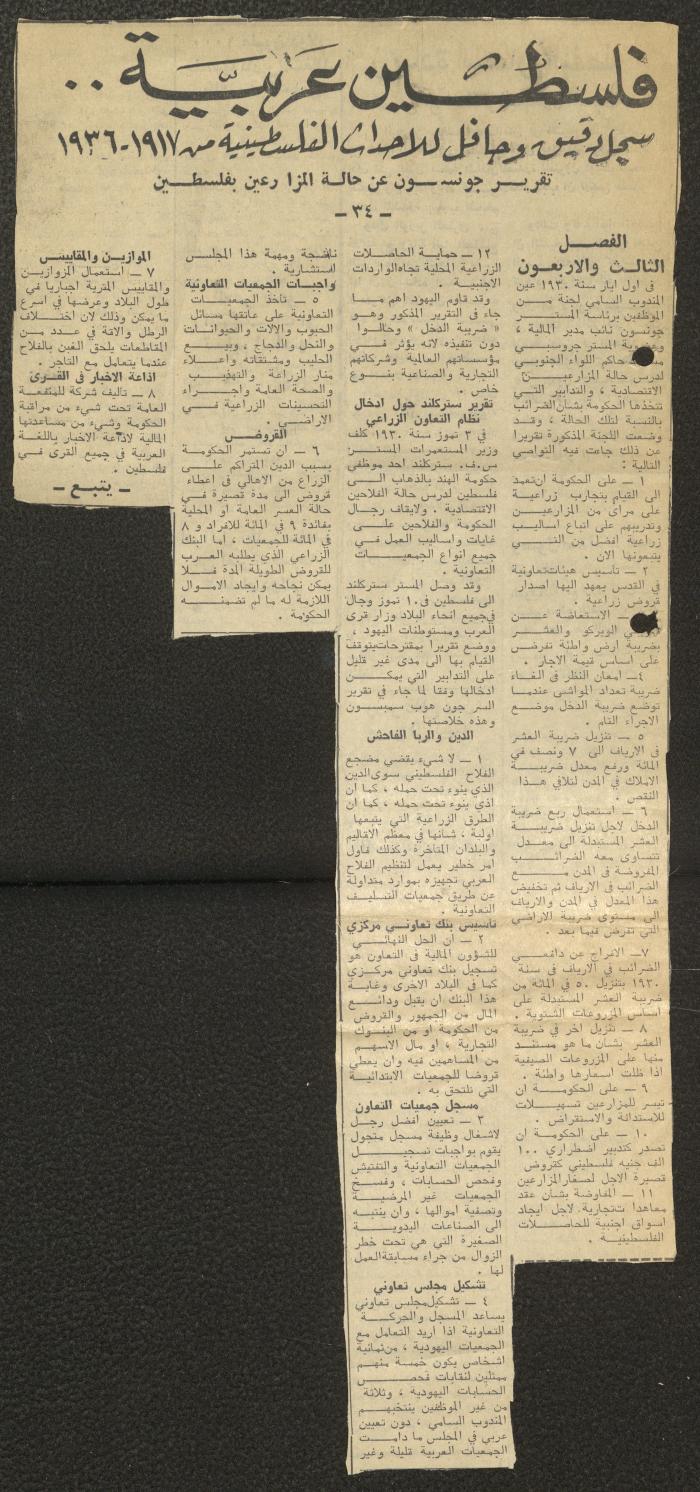 فلسطين عربية ..
سجل دقيق وحافل للاحداث الفلسطينية من ١٩١٧-١٩٣٦
تقرير جونسون عن حالة المزارعين بفلسطين
- ٣٤ -
الفصل
الثالث والاربعون
في اول ايار سنة ١٩٣٠ عين
المندوب السامي لجنة من
الموظفين برئاسة المستر
جونسون نائب مدير المالية ،
وعضوية المستر جروسبي
حاكم اللواء الجنوبي
لدرس حالة المزارعين
الاقتصادية ، والتدابير التي
تتخذها الحكومة بشأن الضرائب
بالنسبة لتلك الحالة ، وقد
وضعت اللجنة المذكورة تقريرا
عن ذلك جاءت فيه النواصي
التالية :
١ - على الحكومة ان تعمد
الى القيام بتجارب زراعية
على مرأى من المزارعين
وتدريبهم على اتباع اساليب
زراعية افضل من التي
يتبعونها الان .
٢ - تأسيس هيئات تعاونية
في القدس يعهد اليها اصدار
قروض زراعية .
- الاستعاضة عن
الويركو والعشر
بضريبة ارض واطئة تفرض
على اساس قيمة الاجار .
٤ - امعان النظر في الغاء
ضريبة تعداد المواشي عندما
توضع ضريبة الدخل موضع
الاجراء التام .
٥ - تنزيل ضريبة العشر
في الارياف الى ٧ ونصف في
المائة ورفع معدل ضريبة
الاملاك في المدن لتلافي هذا
النقص .
٦ - استعمال ريع ضريبة
الدخل لاجل تنزيل ضريبة
العشر المستبدلة الى معدل
تتساوى معه الضرائب
المفروضة في المدن مع
الضرائب في الارياف ثم تخفيض
هذا المعدل في المدن والارياف
الى مستوى ضريبة الاراضي
التي تفرض فيما بعد .
٧ - الافراج عن دافعي
الضرائب في الارياف في سنة
١٩٣٠ بتنزيل ٥٠ في المائة من
ضريبة العشر المستبدلة على
اساس المزروعات الشتوية .
٨ - تنزيل اخر في ضريبة
العشر بشأن ما هو مستند
منها على المزروعات الصيفية
اذا ظلت اسعارها واطئة .
٩ - على الحكومة ان
تيسر للمزارعين تسهيلات
للاستدانة والاستقراض .
١٠ - على الحكومة ان
تصدر كتدبير اضطراري ١٠٠
الف جنيه فلسطيني كقروض
قصيرة الاجل لصغار المزارعين
١١ - المفاوضة بشأن عقد
معاهدا تتجارية لاجل ايجاد
اسواق اجنبية للحاصلات
الفلسطينية .
١٢ - حماية الحاصلات
الزراعية المحلية تجاه الواردات
الاجنبية .
وقد قاوم اليهود اهم ما
جاء في التقرير المذكور وهو
« ضريبة الدخل » وحالوا
دون تنفيذه لانه يؤثر في
مؤسساتهم العالمية وشركاتهم
التجارية والصناعية بنوع
خاص .
تقرير ستركلند حول ادخال
نظام التعاون الزراعي
في ٣ تموز سنة ١٩٣٠ كلف
وزير المستعمرات المستر
س.ف. ستركلند احد موظفي
حكومة الهند بالذهاب الى
فلسطين لدرس حالة الفلاحين
الاقتصادية . ولايقاف رجال
الحكومة والفلاحين على
غايات واساليب العمل في
جميع انواع الجمعيات
التعاونية .
وقد وصل المستر ستركلند
الى فلسطين في ١٠ تموز وجال
في جميع انحاء البلاد وزار قرى
العرب ومستوطنات اليهود ،
ووضع تقريرا بمقترحات يتوقف
القيام بها الى مدى غير قليل
على التدابير التي يمكن
ادخالها وفقا لما جاء في تقرير
السر جون هوب سمبسون
وهذه خلاصتها .
الدين والربا الفاحش
١ - لا شيء يقضي مضجع
الفلاح الفلسطيني سوى الدين
الذي ينوء تحت حمله ، كما ان
اذي ينوء تحت حمله ، كما ان
الطرق الزراعية التي يتبعها
اولية ، شأنها في معظم الاقاليم
والبلدان المتاخرة وكذلك فاول
امر خطير يعمل لتنظيم الفلاح
العربي تجهيزه بموارد متداولة
عن طريق جمعيات التسليف
التعاونية .
تأسيس بنك تعاوني مركزي
٢ - ان الحل النهائي
للشؤون المالية في التعاون هو
تسجيل بنك تعاوني مركزي
كما في البلاد الاخرى وغاية
هذا البنك ان يقبل ودائع
المال من الجمهور والقروض
من الحكومة او من البنوك
التجارية ، او مال الاسهم
من المساهمين فيه وان يعطي
قروضا للجمعيات الابتدائية
التي تلتحق به .
مسجل جمعيات التعاون
٣ - تعيين افضل رجل
لاشغال وظيفة مسجل متجول
يقوم بواجبات تسجيل
الجمعيات التعاونية والتفتيش
وفحص الحسابات ، وفسخ
الجمعيات غير المرضية
وتصفية اموالها ، وان ينتبه
الى الصناعات اليدوية
الصغيرة التي هي تحت خطر
الزوال من جراء مسابقة العمل
لها .
تشكيل مجلس تعاوني
٤ - تشكيل مجلس تعاوني
يساعد المسجل والحركة
التعاونية اذا اريد التعامل مع
الجمعيات اليهودية ، من ثمانية
اشخاص يكون خمسة منهم
ممثلين لنقابات فحص
الحسابات اليهودية ، وثلاثة
من غير الموظفين ينتخبهم
المندوب السامي ، دون تعيين
عربي في المجلس ما دامت
الجمعيات العربية قليلة وغير
ناضجة ومهمة هذا المجلس
استشارية .
واجبات الجمعيات التعاونية
٥ - تأخذ الجمعيات
التعاونية على عاتقها مسائل
الحبوب والالات والحيوانات
والنحل والدجاج ، وبيع
الحليب ومشتقاته واعلاء
منار الزراعة والتهذيب
والصحة العامة واجراء
التحسينات الزراعية في
الاراضي .
القروض
٦ - ان تستمر الحكومة
بسبب الدين المتراكم على
الزراع من الاهالي في اعطاء
قروض الى مدة قصيرة في
حالة العسر العامة او المحلية
بفائدة ٩ في المائة للافراد و ٨
في المائة للجمعيات ، اما البنك
الزراعي الذي يطلبه العرب
للقروض الطويلة المدة فلا
يمكن نجاحه وايجاد الاموال
اللازمة له ما لم تضمنه
الحكومة .
الموازين والمقاييس
٧ - استعمال المزوازين
والمقاييس المترية اجباريا في
طول البلاد وعرضها في اسرع
ما يمكن وذلك لان اختلاف
الرطل والاقة في عدد من
المقاطعات يلحق الغبن بالفلاح
عندما يتعامل مع التاجر .
اذاعة الاخبار في القرى
٨ - تأليف شركة للمنفعة
العامة تحت شيء من مراقبة
الحكومة وشيء من مساعدتها
المالية لاذاعة الاخبار باللغة
العربية في جميع القرى في
فلسطين .
- يتبع -